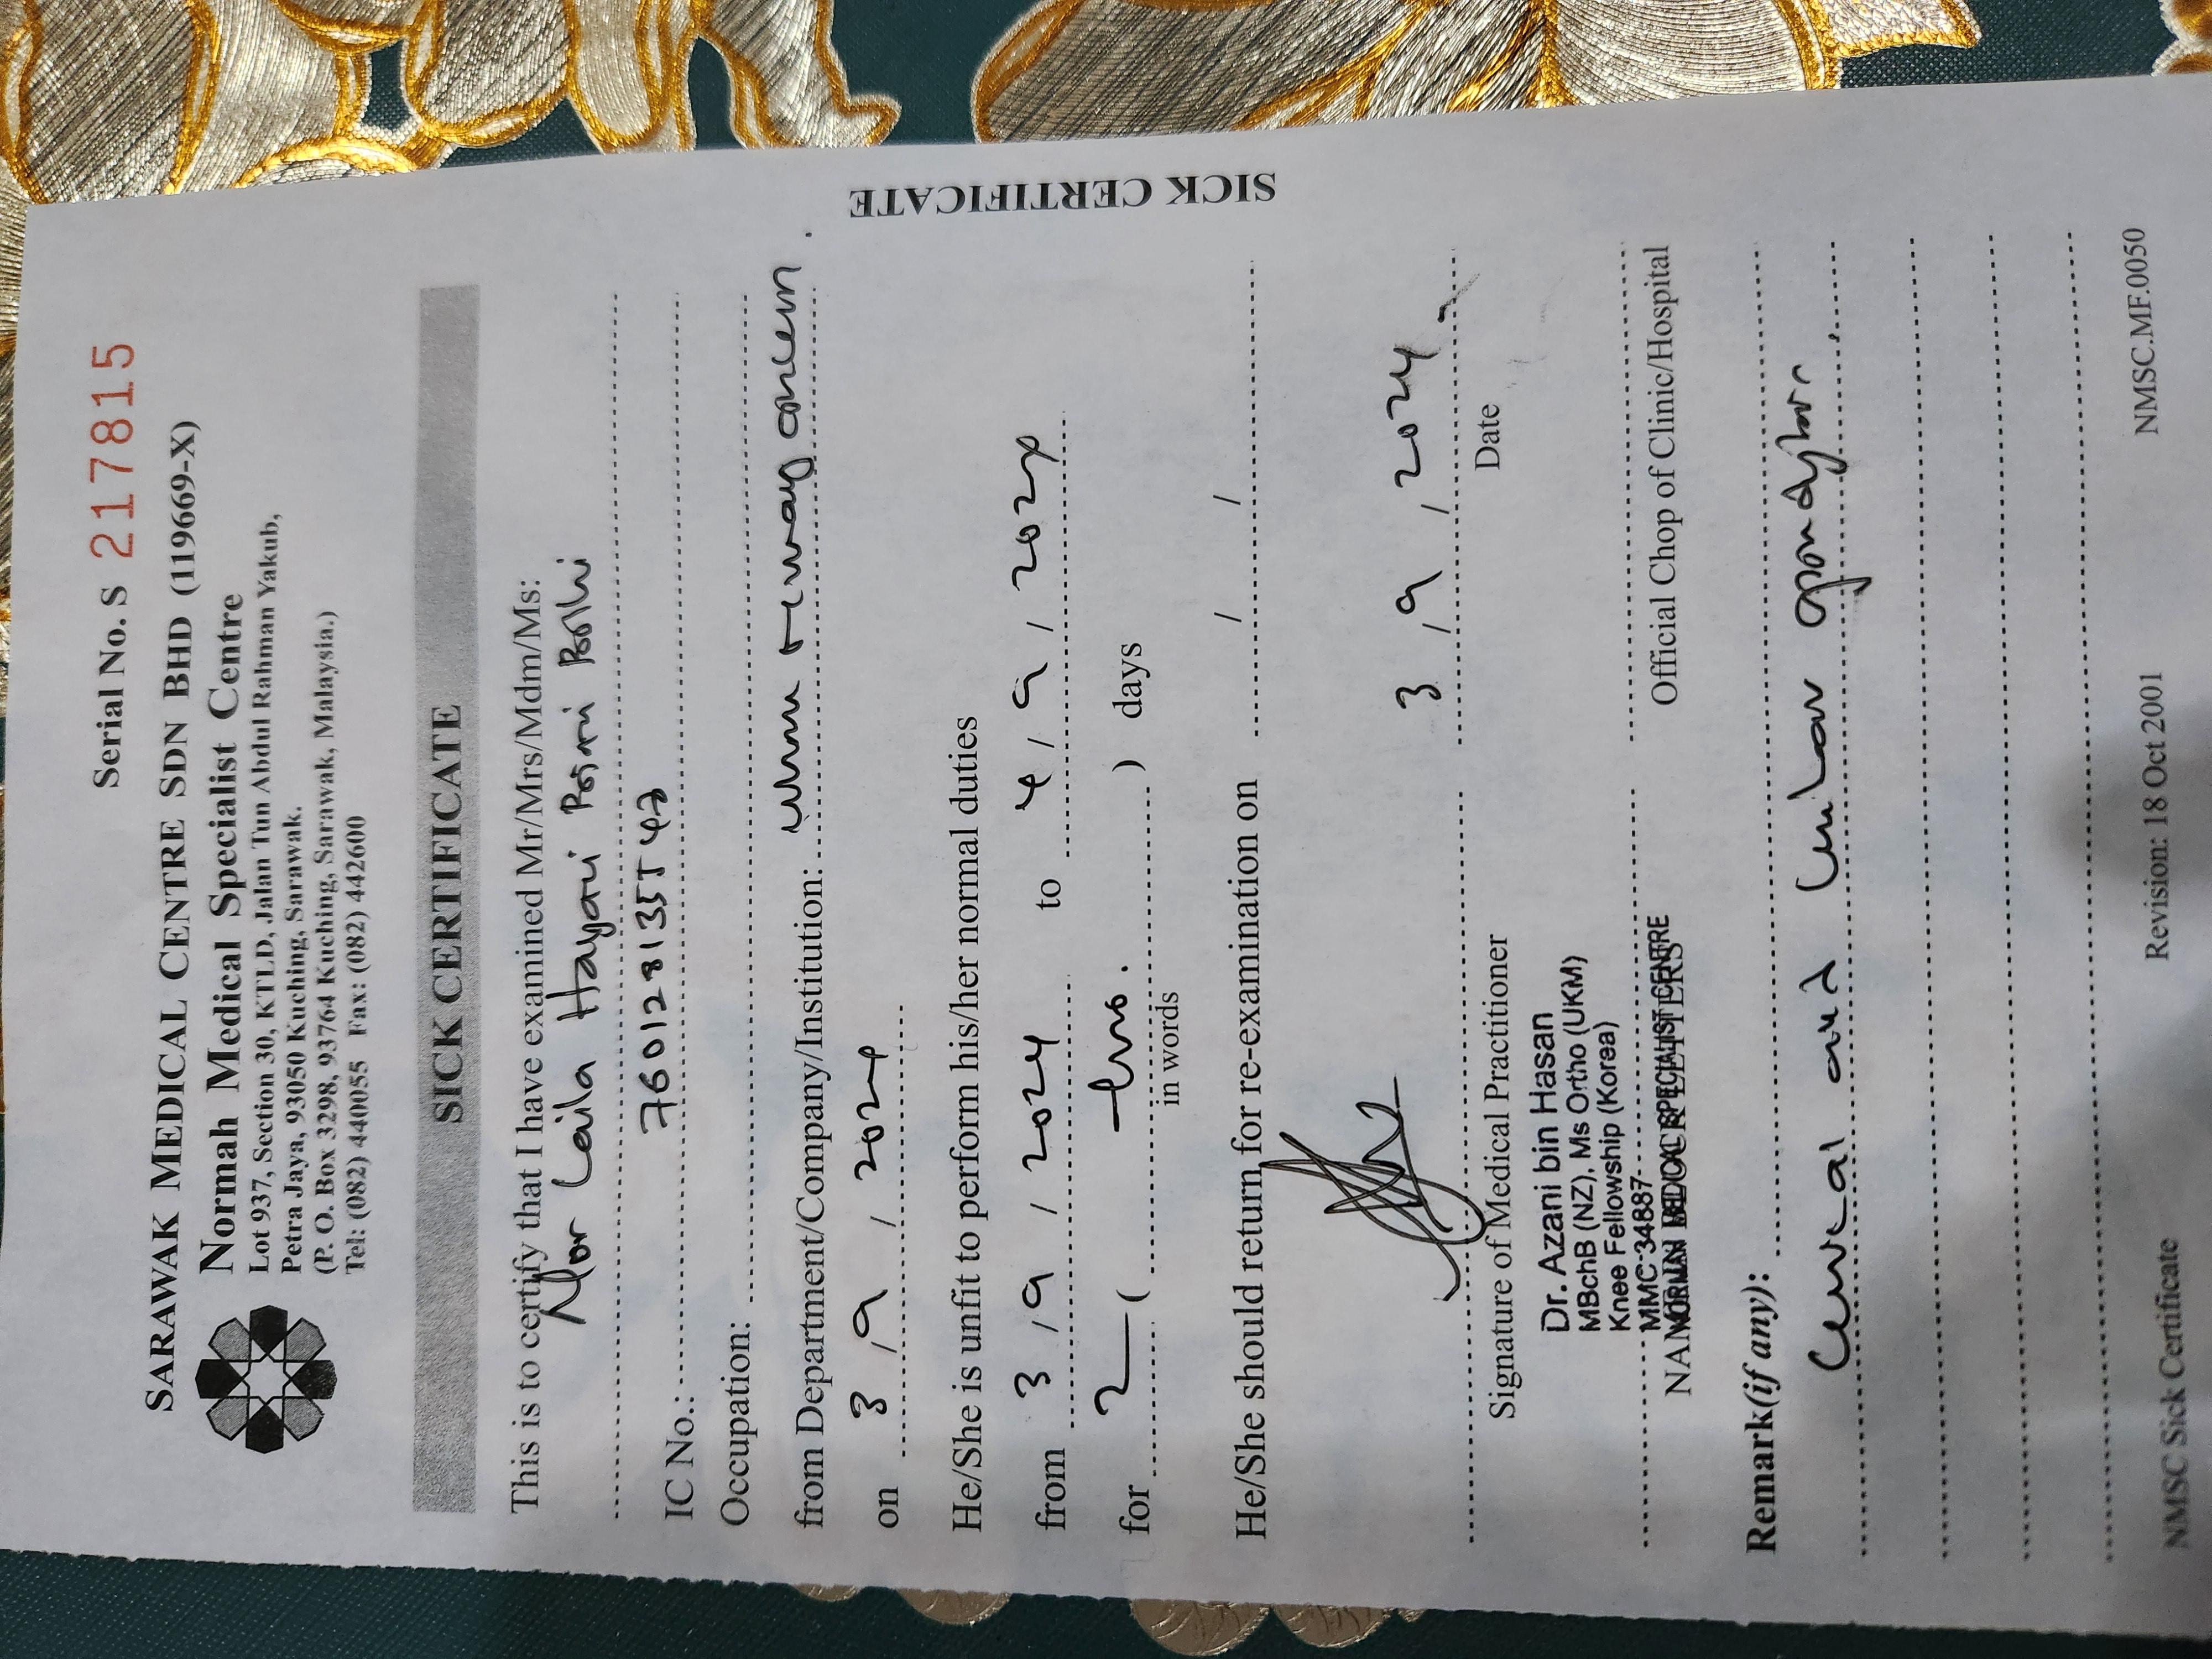 Serial No. S 217815
SARAWAK MEDICAL CENTRE SDN BHD (119669-X)
Normah Medical Specialist Centre
Lot 937, Section 30, KTLD, Jalan Tun Abdul Rahman Yakub,
Petra Jaya, 93050 Kuching, Sarawak.
(P. O. Box 3298, 93764 Kuching, Sarawak, Malaysia.)
Tel: (082) 440055 Fax: (082) 442600
SICK CERTIFICATE
This is to certify that I have examined Mr/Mrs/Mdm/Ms:
Nor Laila Hayani
IC No.:
Occupation:
from Department/Company/Institution: whom it may concern.
on 3 / 9 / 2024
He/She is unfit to perform his/her normal duties
from 3 / 9 / 2024 to 4 / 9 / 2024
for 2 ( two. ) days
in words
He/She should return for re-examination on / /
3 / 9 / 2024
Signature of Medical Practitioner Date
Dr. Azani bin Hasan
MBchB (NZ), Ms Ortho (UKM)
Knee Fellowship (Korea)
MMC 34887
NORMAH MEDICAL SPECIALIST CENTRE
NAME IN BLOCK LETTERS Official Chop of Clinic/Hospital
Remark(if any):
Cervical and lumbar
NMSC Sick Certificate Revision: 18 Oct 2001 NMSC.MF.0050
SICK CERTIFICATE